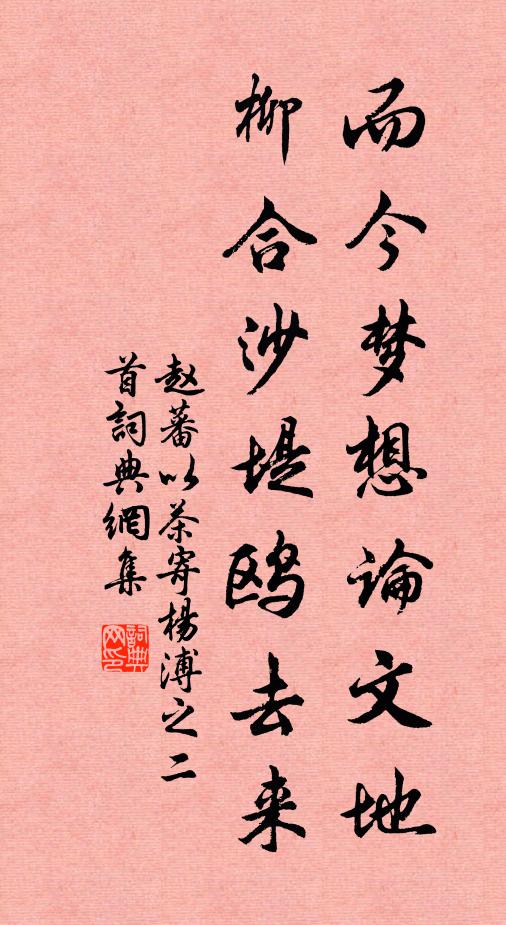 而今梦想論文地
柳合沙堤鸥去来
赵蕃以茶寄楊溥之二
首詞典網集
詞典网印